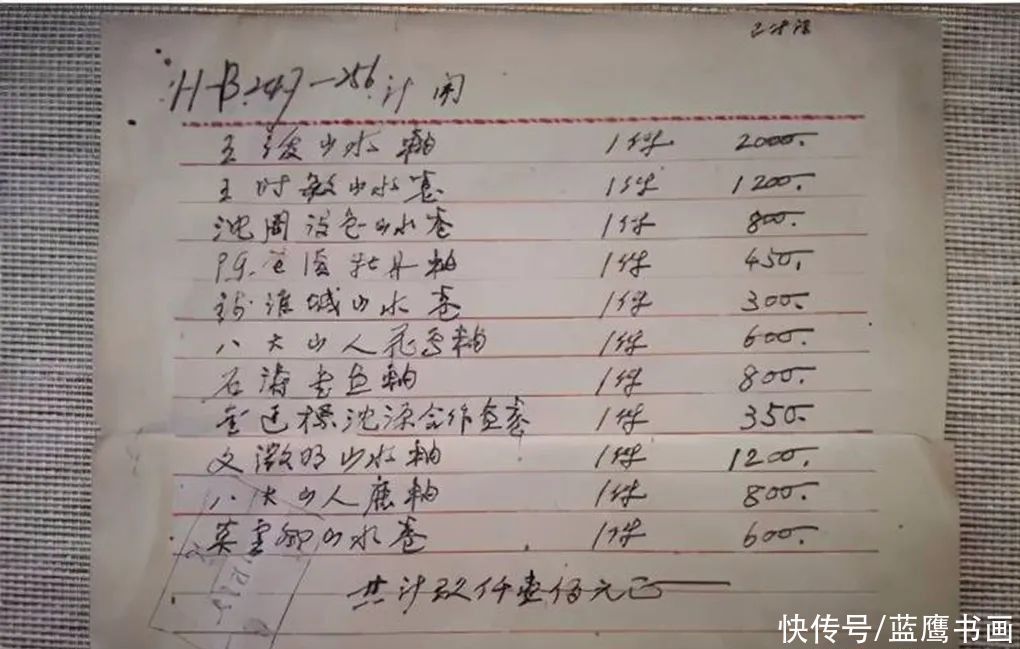 H-B.247-256 计開
王绂山水軸 1件 2000.
王时敏山水卷 1件 1200.
沈周设色山水卷 1件 800.
牡丹軸 1件 450.
钱维城山水卷 1件 300.
八大山人花鸟軸 1件 600.
石涛書画軸 1件 800.
金廷標沈源合作画卷 1件 350.
文徵明山水軸 1件 1200.
八大山人鹿軸 1件 800.
莫雲卿山水卷 1件 600.
共计玖仟壹佰元正
快传号/蓝鹰书画